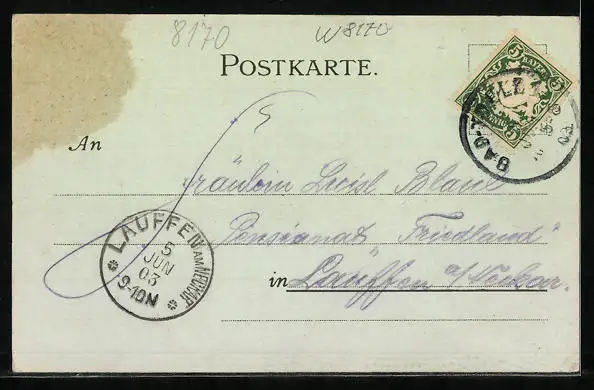 8170
W8170
POSTKARTE.
5 BAYERN 5
BAD-
An
5
Fräulein Liesl Blank
Pensionat "Friedland"
in Lauffen a/Neckar.
LAUFFEN AM NECKAR
5
JUN
03
9-10N